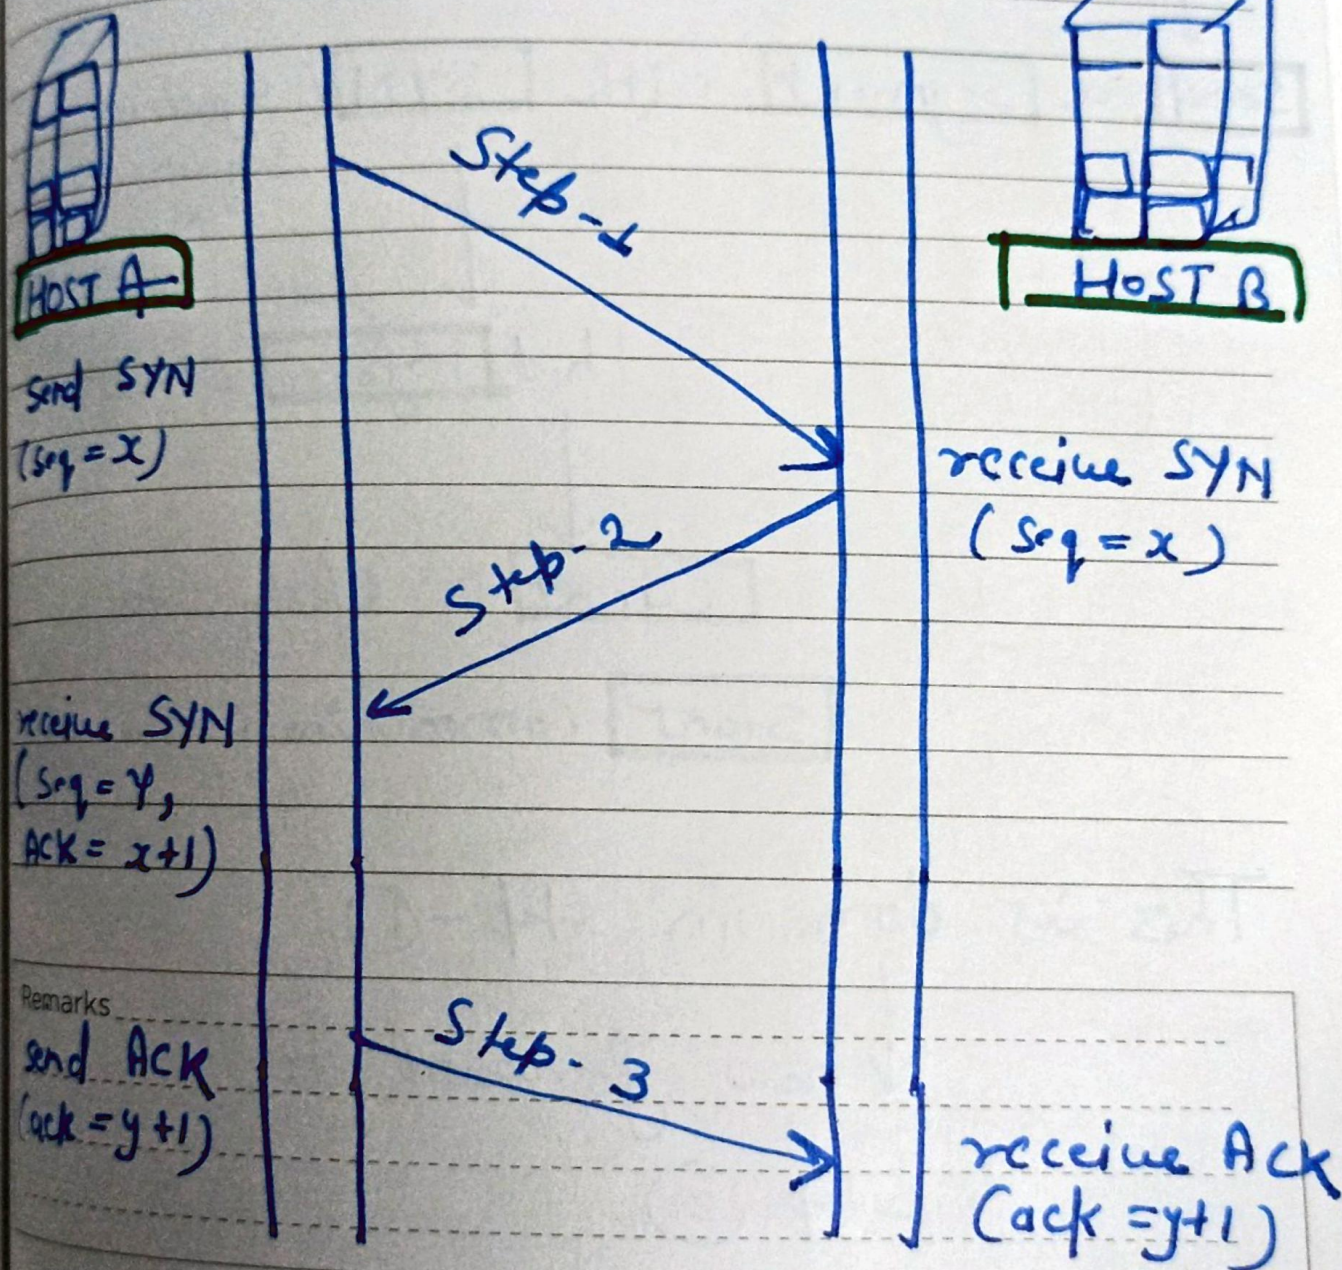 HOST A
HOST B
Step-1
send SYN
(seq = x)
receive SYN
(seq = x)
Step-2
receive SYN
(seq = y,
ACK = x+1)
Remarks
Step-3
send ACK
(ack = y+1)
receive ACK
(ack = y+1)